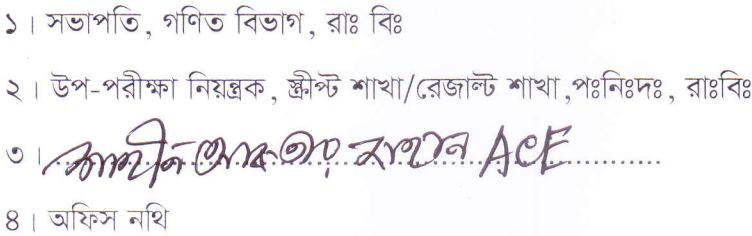 ১। সভাপতি, গণিত বিভাগ, রাঃ বিঃ
২। উপ-পরীক্ষা নিয়ন্ত্রক, স্ক্রীপ্ট শাখা/রেজাল্ট শাখা,পঃনিঃদঃ, রাঃবিঃ
৩। ACE
৪। অফিস নথি